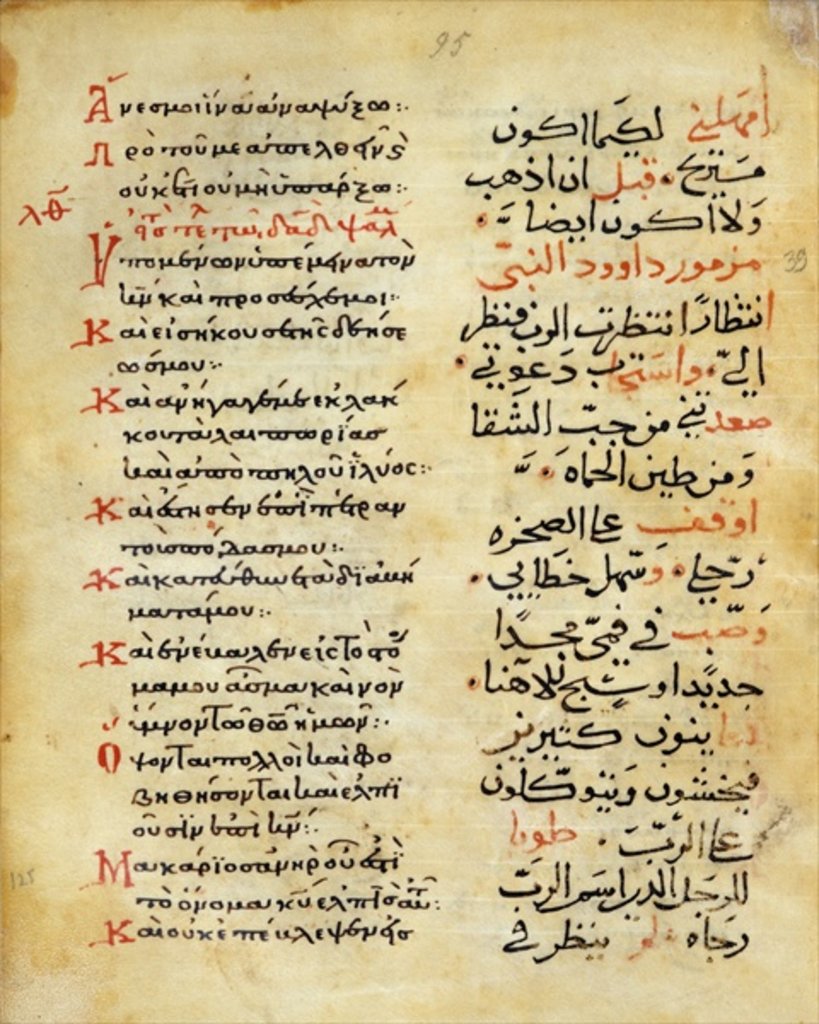 95
Ἄνες μοι ἵνα ἀναψύξω:·
Πρὸ τοῦ με ἀπελθεῖν ϗ
οὐκέτι οὐ μὴ ὑπάρξω:·
λθ
Ὑπομένων ὑπέμεινα τὸν
κ̅ν̅ καὶ προσέσχε μοι:·
Καὶ εἰσήκουσε τῆς δεήσε
ως μου:·
Καὶ ἀνήγαγέ με ἐκ λάκ
κου ταλαιπωρίας
καὶ ἀπὸ πηλοῦ ἰλύος:·
Καὶ ἔστησεν ἐπὶ πέτραν
τοὺς πόδας μου:·
Καὶ κατεύθυνε τὰ διαβή
ματά μου:·
Καὶ ἐνέβαλεν εἰς τὸ στό
μα μου ᾆσμα καινὸν
ὕμνον τῷ θ̅ῷ ἡμῶν:·
Ὄψονται πολλοὶ καὶ φο
βηθήσονται καὶ ἐλπϊ
οῦσϊν ἐπὶ κ̅ν̅:·
Μακάρϊος ἀνὴρ οὗ ἐστὶ
τὸ ὄνομα κ̅υ̅ ἐλπὶς αὐτ:
Καὶ οὐκ ἐπέβλεψεν εἰς
125
امهلني لكيما اكون
مستريح قبل ان اذهب
ولا اكون ايضا
مزمور داوود النبي
39
انتظارًا انتظرت الرب فنظر
اليّ واستجاب دعوتي
صعدني من جبّ الشقا
ومن طين الحماه
اوقف على الصخره
رجلي وسهل خطايي
وصب في فمي مجدًا
جديدا وتسبح للالاهنا
ينون كثيرين
فيخشون ويتوكلون
على الربّ طوبا
للرجل الذي اسم الربّ
رجاه ينظر في